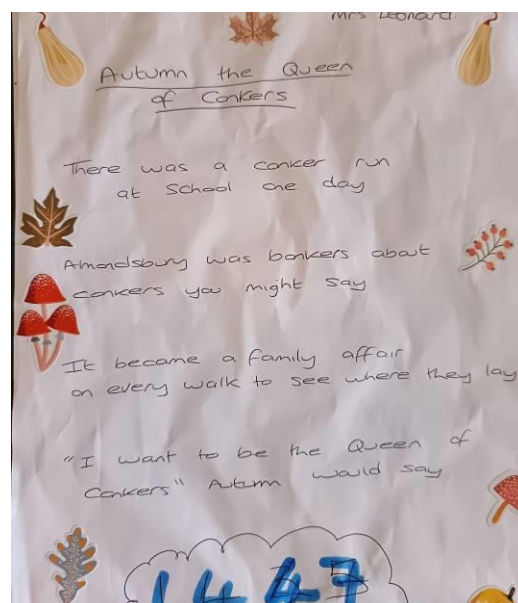 Mrs Leonard.
Autumn the Queen
of Conkers
There was a conker run
at School one day
Amondsbury was bonkers about
conkers you might say
It became a family affair
on every walk to see where they lay
"I want to be the Queen of
Conkers" Autumn would say
1447